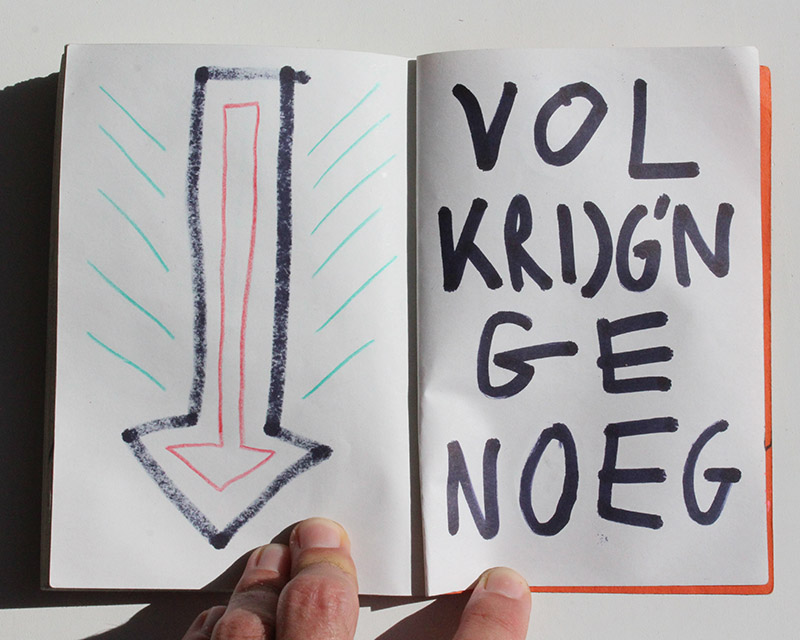 VOL
KRIJG'N
GE
NOEG